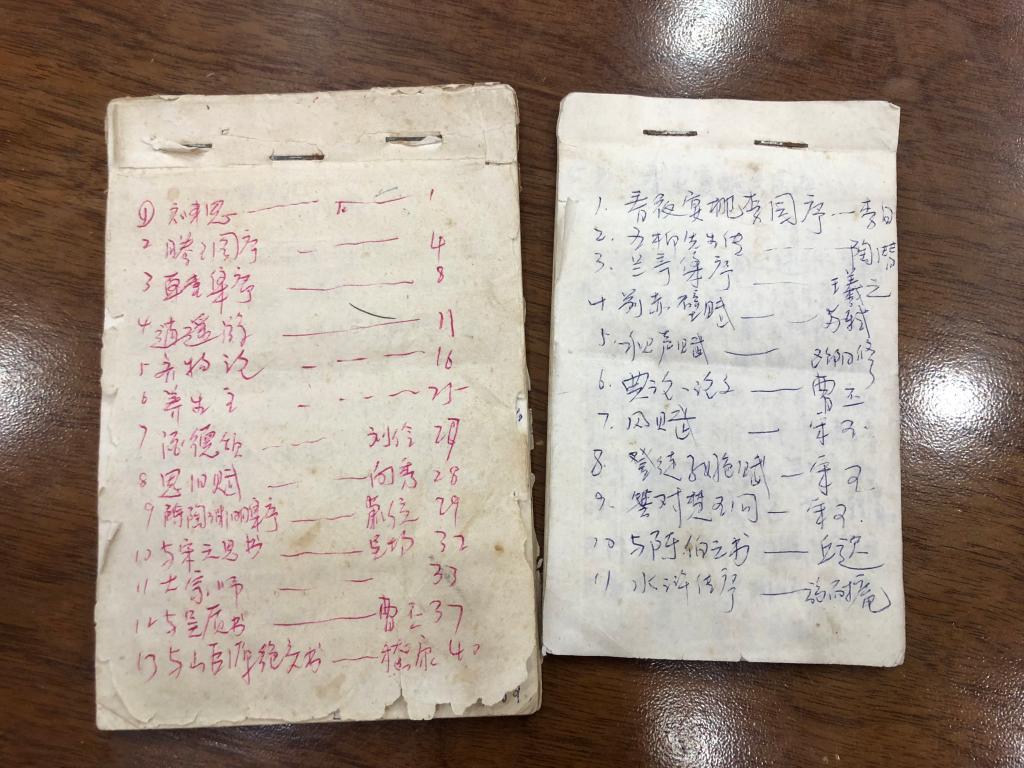 ① 1
2 滕王阁序 — — 4
3 集序 — 8
4 逍遥游 — 11
5 齐物论 — — 16
6 养生主 — 25
7 酒德颂 — — 刘伶
8 思旧赋 — — 向秀 28
9 陶渊明集序 — 萧统 29
10 与宋元思书 — 吴均 32
11 大宗师 — — 33
12 与吴质书 — 曹丕 37
13 与山巨源绝交书 — 嵇康 40
1. 春夜宴桃李园序 — 李白
2. 五柳先生传 — 陶潜
3. 兰亭集序 — 羲之
4 前赤壁赋 — — 苏轼
5. 秋声赋 — 欧阳修
6. 典论·论文 — 曹丕
7. 风赋 — 宋玉.
8. 登徒子好色赋 — 宋玉.
9. 答对楚王问 — 宋玉.
10 与陈伯之书 — 丘迟
11 水浒传序 — 施耐庵